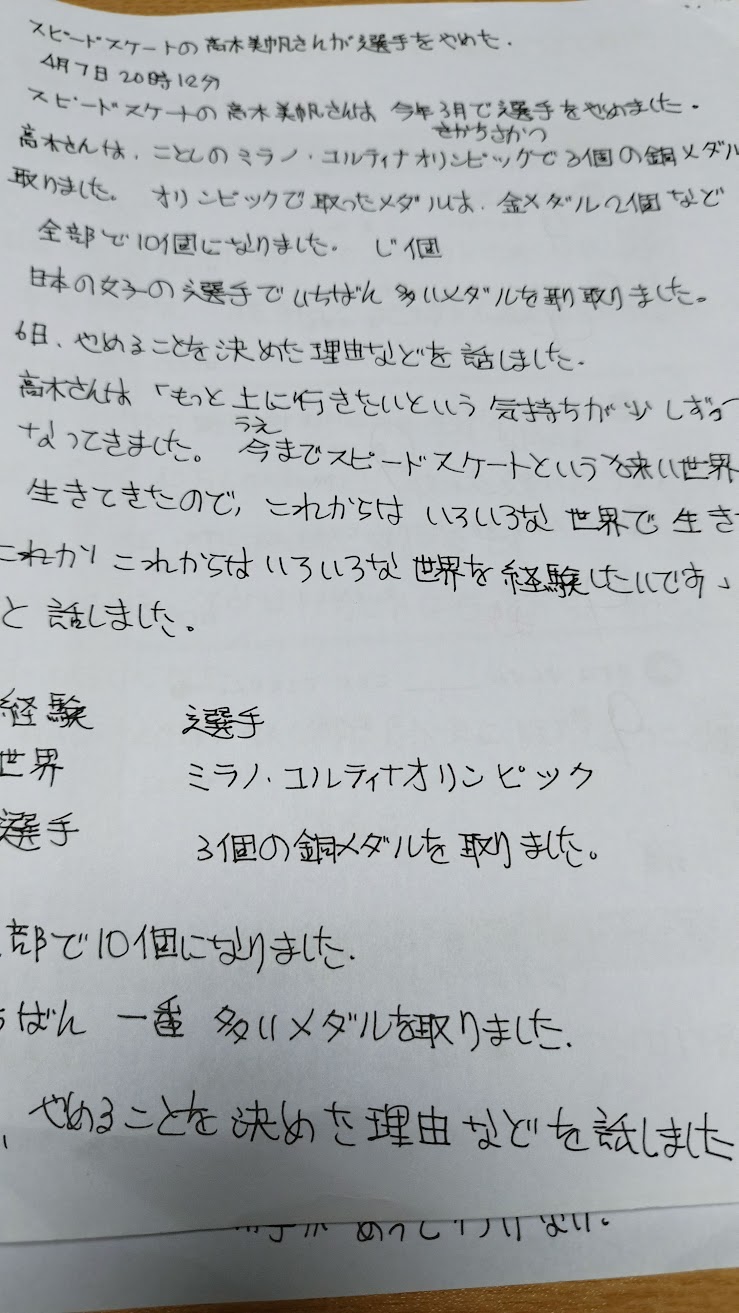 スピードスケートの高木美帆さんが選手をやめた.
4月7日 20時12分
スピードスケートの高木美帆さんは 今年3月で選手をやめました.
さがちさかつ
高木さんは、ことしのミラノ・コルティナオリンピックで3個の銅メダル
取りました。 オリンピックで取ったメダルは、金メダル2個など
全部で10個になりました. じ個
日本の女子の選手でいちばん多いメダルを取り取りました。
6日、やめることを決めた理由などを話しました.
高木さんは「もっと上に行きたいという気持ちが少しずつ
うえ
なってきました。 今までスピードスケートという狭い世界
生きてきたので, これからはいろいろな世界で生き
これから これからはいろいろな世界を経験したいです」
と話しました。
経験 選手
世界 ミラノ・コルティナオリンピック
選手 3個の銅メダルを取りました。
部で10個になりました.
ばん 一番 多いメダルを取りました.
やめることを決めた理由などを話しました